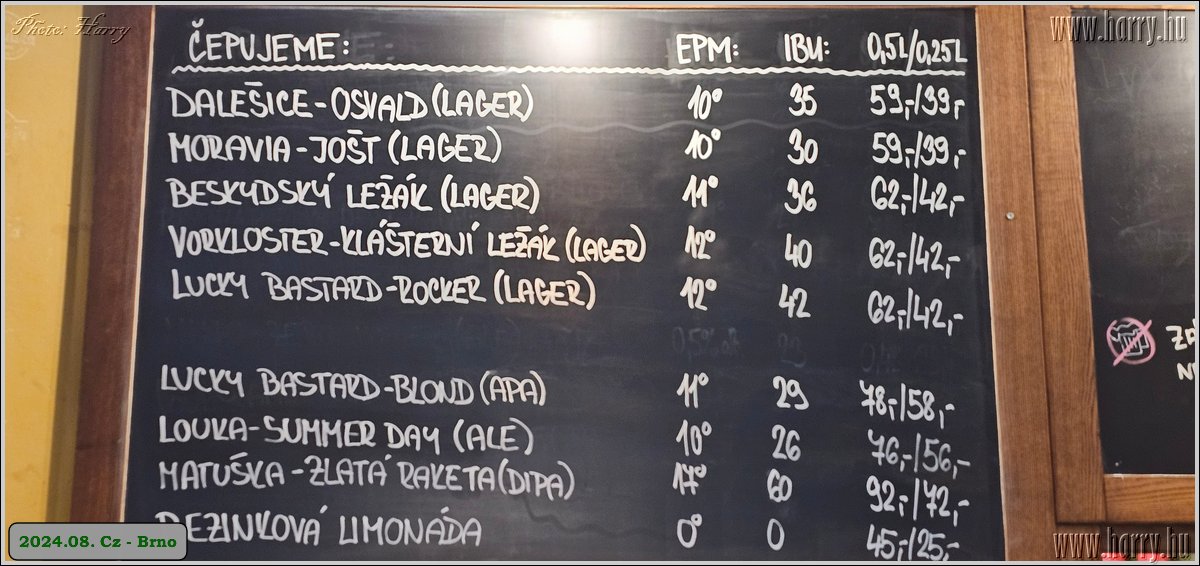 Photo: Harry
www.harry.hu
ČEPUJEME: EPM: IBU: 0,5L/0,25L
DALEŠICE-OSVALD (LAGER) 10° 35 59,-/39,-
MORAVIA-JOŠT (LAGER) 10° 30 59,-/39,-
BESKYDSKÝ LEŽÁK (LAGER) 11° 36 62,-/42,-
VORKLOSTER-KLÁŠTERNÍ LEŽÁK (LAGER) 12° 40 62,-/42,-
LUCKY BASTARD-ROCKER (LAGER) 12° 42 62,-/42,-
LUCKY BASTARD-BLOND (APA) 11° 29 78,-/58,-
LOUKA-SUMMER DAY (ALE) 10° 26 76,-/56,-
MATUŠKA-ZLATÁ RAKETA (DIPA) 17° 60 92,-/72,-
LIMONÁDA 0° 0 45,-/25,-
2024.08. Cz - Brno
www.harry.hu